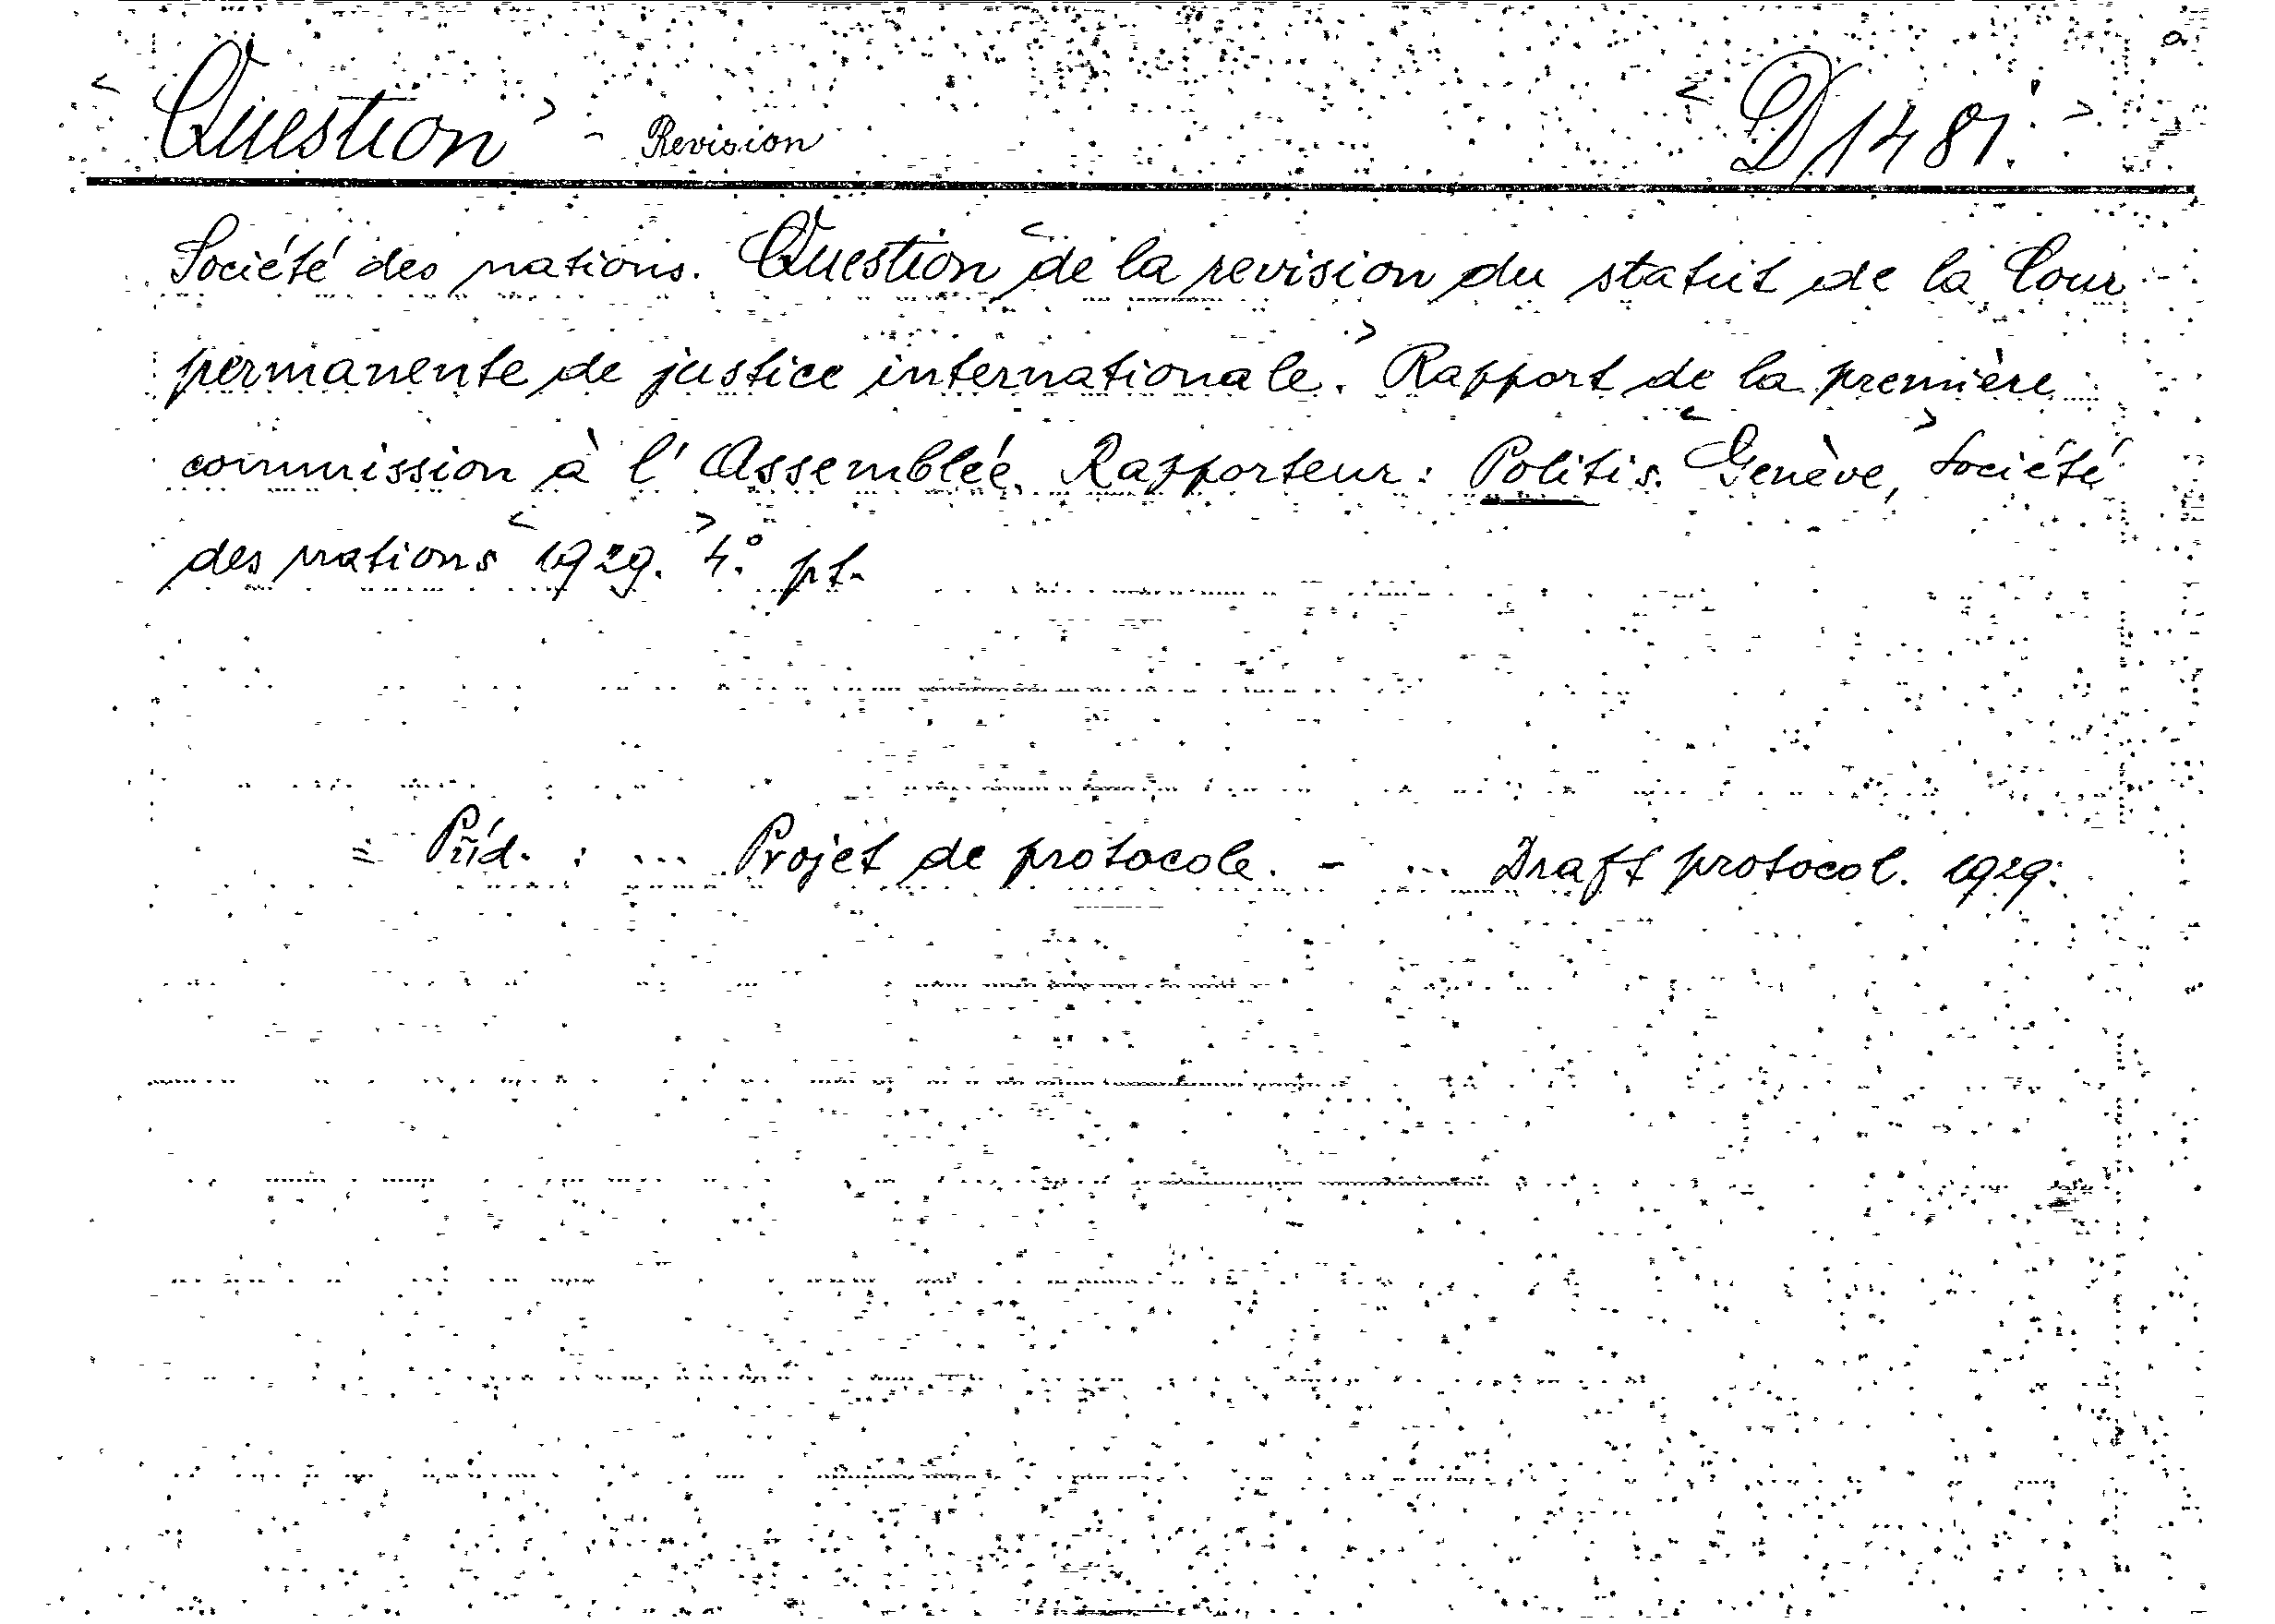 < Question > - Revision < D 1481. >
Société des nations. < Question de la revision du statut de la Cour
permanente de justice internationale. > Rapport de la première
commission à l'Assemblée. Rapporteur: Politis. < Genève, > Société
des nations < 1929. > 4.° pt.
= Příd. : ... Projet de protocole. - ... Draft protocol. 1929.